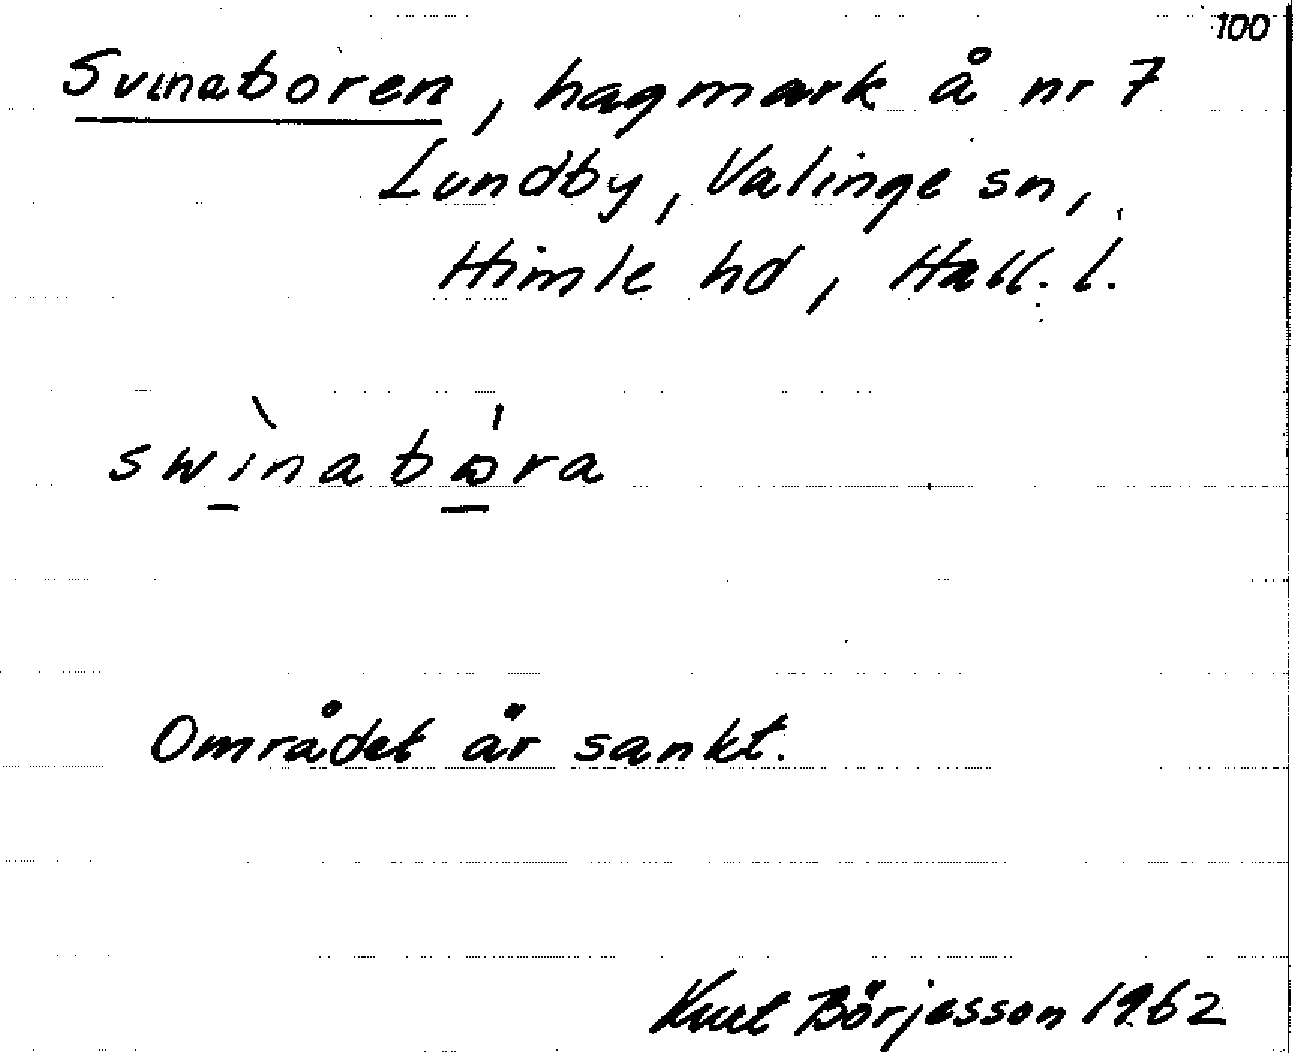 100
Svinaboren, hagmark å nr 7
Lundby, Valinge sn,
Himle hd, Hall. l.
swìnabɷ́ra
Området är sankt.
Knut Börjesson 1962